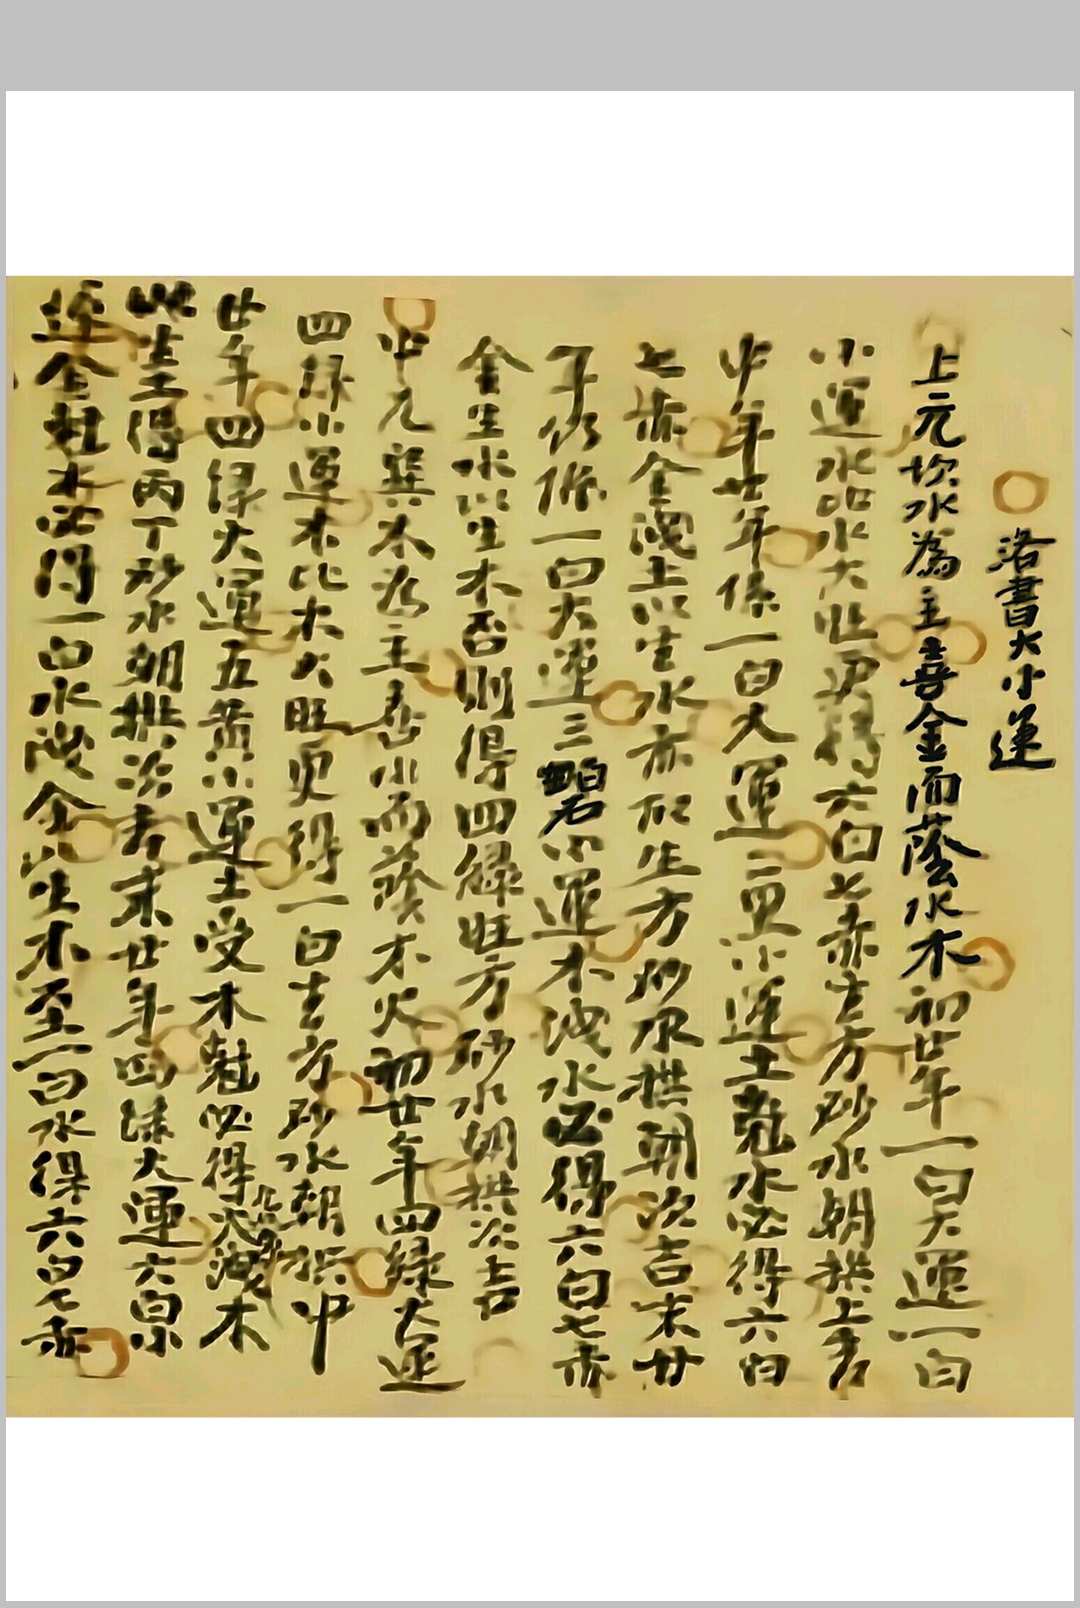 洛書大小運
上元坎水為主喜金而蔭水木初廿年一白大運一白
小運水比水大旺更得六白七赤吉方砂水朝拱上吉
中年廿年係一白大運二黑小運土尅水必得六白
七赤金洩土以生水亦取生方砂水拱朝次吉末廿
年仍係一白大運三碧小運木洩水必得六白七赤
金生水以生木否則得四綠旺方砂水朝拱次吉
中元巽木為主喜水而蔭木火初廿年四綠大運
四綠小運木比木大旺更得一白吉方砂水朝拱中
廿年四綠大運五黃小運土受木尅必得火洩木
生土得丙丁砂水朝拱次吉末廿年四綠大運六白
運金尅木必得一白水洩金以生木至一白水得六白七赤